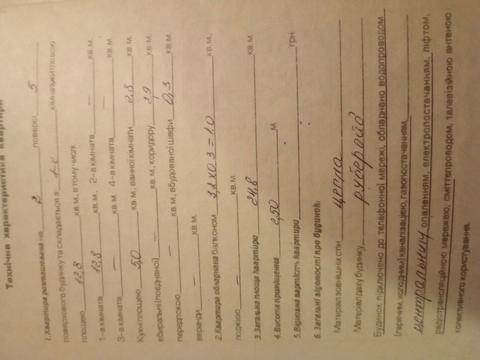 Технічна характеристика квартири
1. Квартира розташована на 2 поверсі 5
поверхового будинку та складається з 1-ї кімнати житловою
площею 13,8 кв.м, в тому числі:
1-а кімната 13,8 кв.м. 2-а кімната — кв.м.
3-а кімната — кв.м. 4-а кімната — кв.м.
Кухні площею 5,0 кв.м, ванної кімнати 2,8 кв.м.
вбиральні (поєднаної) — кв.м, коридору 2,9 кв.м.
передпокою — кв.м, вбудованої шафи 0,3 кв.м.
веранди — кв.м.
2. Квартира обладнана балконом 3.1x0.3=1.0 кв.м,
лоджією кв.м.
3. Загальна площа квартири 24.8 кв.м.
4. Висота приміщення 2,50 м
5. Вартість квартири грн
6. Загальні відомості про будинок:
Матеріал зовнішніх стін цегла
Матеріал даху будинку рубероїд
Будинок, підключено до телефонної мережі, обладнано, водопроводом
(гарячим, холодним) каналізацією, газопостачанням,
центральним опаленням, електропостачанням, ліфтом,
радіотрансляційною мережею, сміттєпроводом, телевізійною антеною
колективного користування.